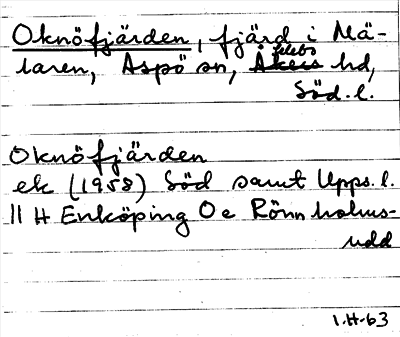 Oknöfjärden, fjärd i Mä-
laren, Aspö sn, Åkers hd,
Söd. l.
Oknöfjärden
ek (1958) Söd samt Upps. l.
11 H Enköping 0e Rönnholms-
udd
1.H-63